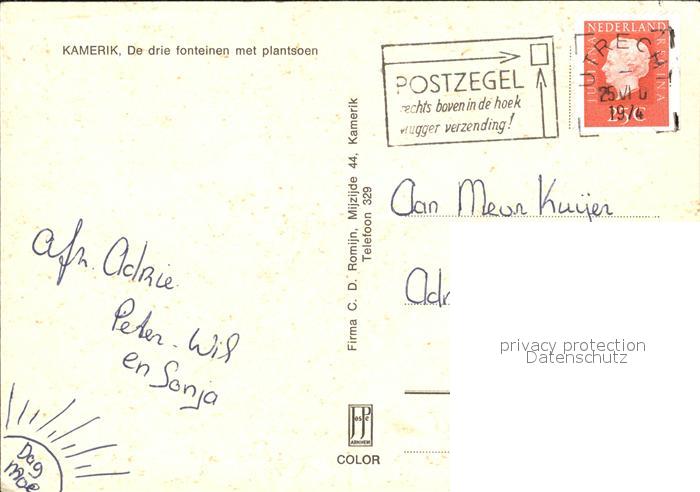 KAMERIK, De drie fonteinen met plantsoen
POSTZEGEL
rechts boven in de hoek
vlugger verzending!
NEDERLAND
UTRECH
25 VI
1974
Aan Mevr Kuijer
Adr
afz. Adrie
Peter - Wil
en Sonja
Dag
moe
Firma C. D. Romijn, Mijzijde 44, Kamerik
Telefoon 329
JosPe
ARNHEM
COLOR
privacy protection
Datenschutz